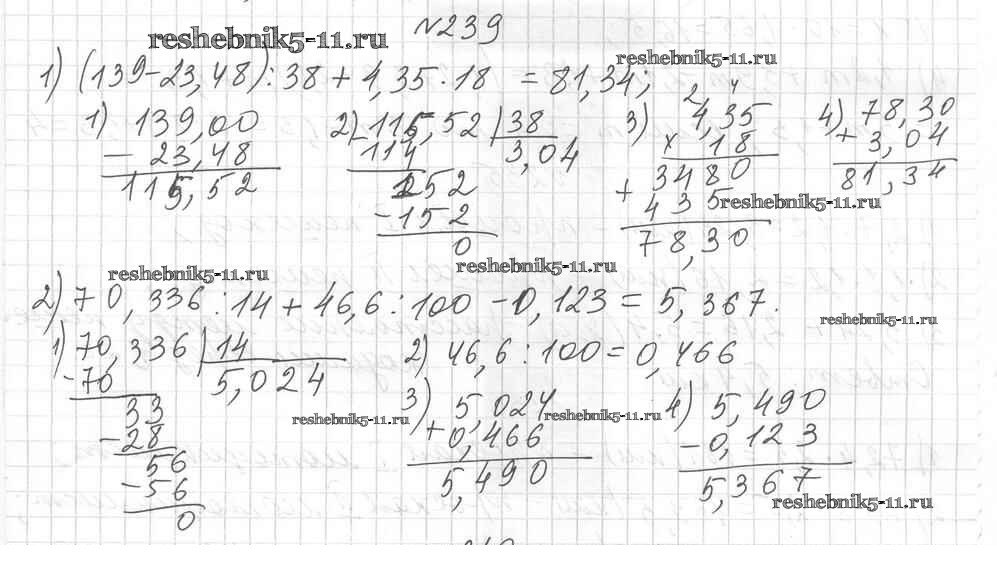 №239
reshebnik5-11.ru
reshebnik5-11.ru
1) (139-23,48):38 + 4,35·18 = 81,34;
1) 139,00
- 23,48
115,52
2) 115,52 | 38
- 114 3,04
152
-152
0
3) 4,35
× 18
3480
+ 435
78,30
4) 78,30
+ 3,04
81,34
reshebnik5-11.ru
reshebnik5-11.ru
reshebnik5-11.ru
2) 70,336:14 + 46,6:100 - 0,123 = 5,367.
reshebnik5-11.ru
1) 70,336 | 14
-70 5,024
33
-28
56
-56
0
2) 46,6:100 = 0,466
3) 5,024
+0,466
5,490
4) 5,490
-0,123
5,367
reshebnik5-11.ru
reshebnik5-11.ru
reshebnik5-11.ru